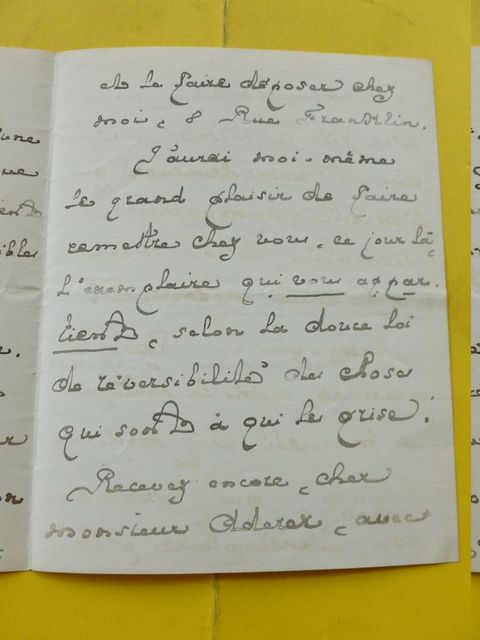 et le faire déposer chez
moi, 8 Rue Franklin.
J'aurai moi-même
le grand plaisir de faire
remettre chez vous, ce jour là,
l'exemplaire qui vous appar-
tient, selon la douce loi
de réversibilité des choses
qui sont à qui les prise!
Recevez encore, cher
monsieur , avec